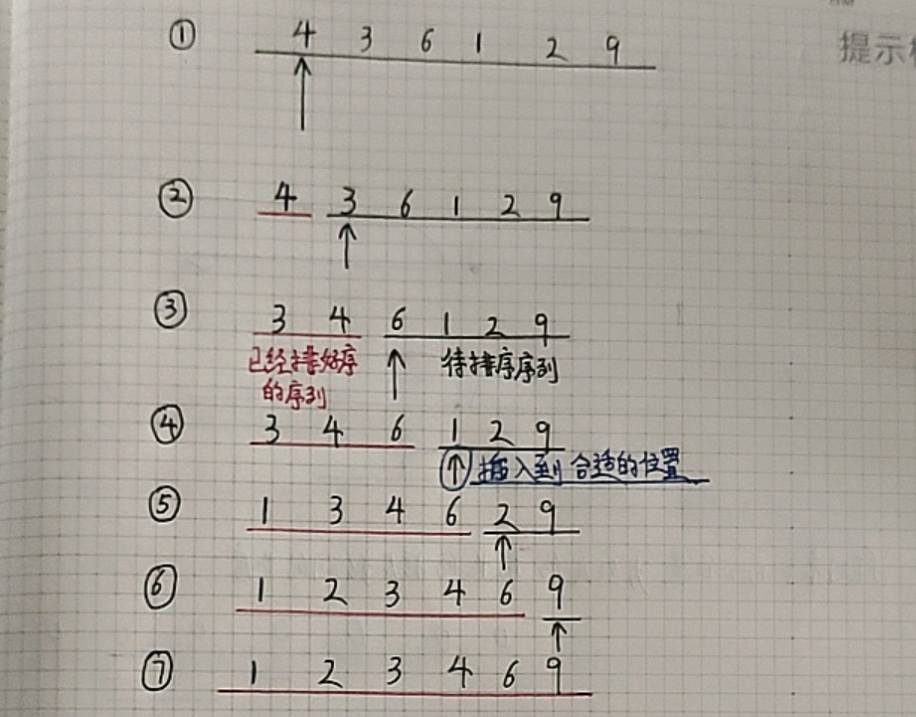 ① 4 3 6 1 2 9
提示
② 4 3 6 1 2 9
③ 3 4 6 1 2 9
已经排好序 待排序序列
的序列
④ 3 4 6 1 2 9
插入到合适的位置
⑤ 1 3 4 6 2 9
⑥ 1 2 3 4 6 9
⑦ 1 2 3 4 6 9